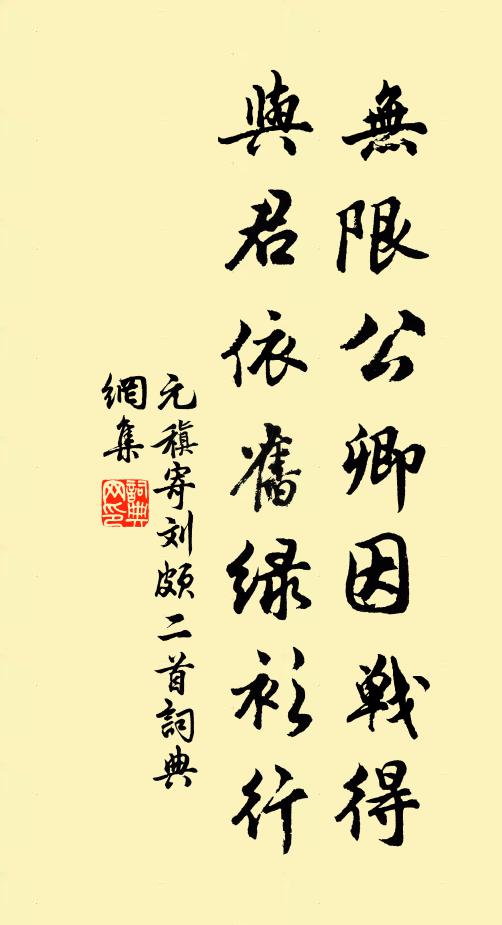 無限公卿因戦得
與君依舊緑衫行
元稹寄刘頗二首詞典
網集
詞典网印